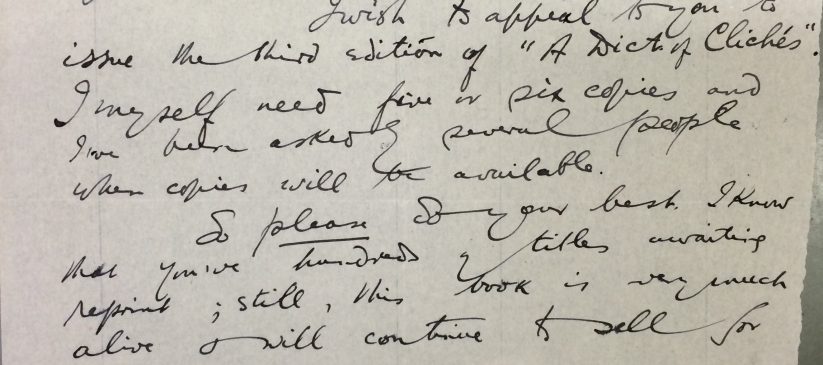 I wish to appeal to you to
issue the third edition of "A Dict. of Clichés".
I myself need five or six copies and
I've been asked by several people
when copies will be available.
So please do your best. I know
that you've hundreds of titles awaiting
reprint; still, this book is very much
alive & will continue to sell for